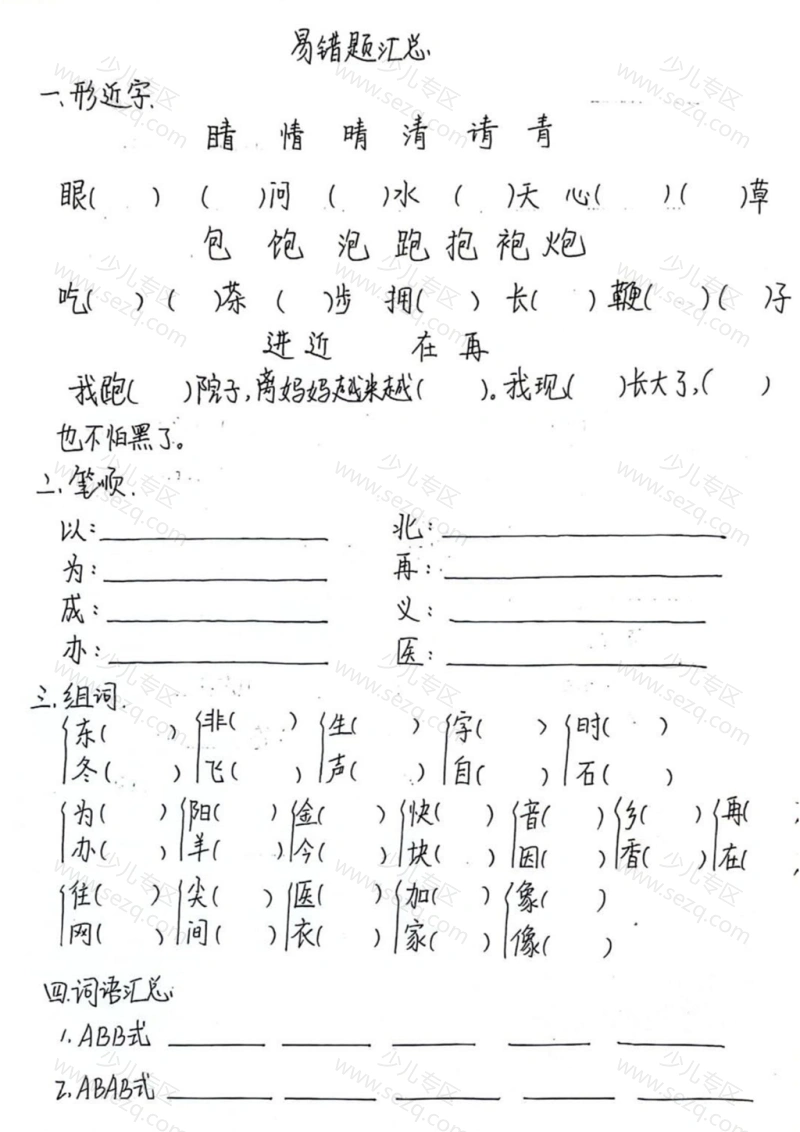 易错题汇总
一、形近字.
睛 情 晴 清 请 青
眼( ) ( )问 ( )水 ( )天 心( ) ( )草
包 饱 泡 跑 抱 袍 炮
吃( ) ( )茶 ( )步 拥( ) 长( ) 鞭( ) ( )子
进 近 在 再
我跑( )院子,离妈妈越来越( )。我现( )长大了,( )
也不怕黑了。
二、笔顺.
以: 北:
为: 再:
成: 义:
办: 医:
三、组词.
东( ) 非( ) 生( ) 字( ) 时( )
冬( ) 飞( ) 声( ) 自( ) 石( )
为( ) 阳( ) 金( ) 快( ) 音( ) 乡( ) 再(
办( ) 羊( ) 今( ) 块( ) 因( ) 香( ) 在(
往( ) 尖( ) 医( ) 加( ) 象( )
网( ) 间( ) 衣( ) 家( ) 像( )
四.词语汇总.
1.ABB式
2.ABAB式
少儿专区
www.sezq.com